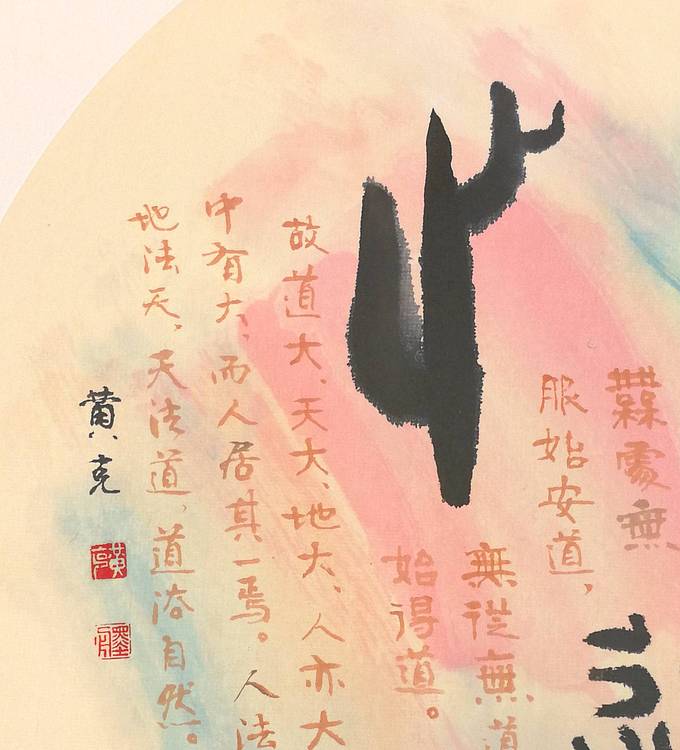 無處無
服始安道，
無從無道
始得道。
故道大、天大、地大、人亦大
中有大，而人居其一焉。人法
地法天，天法道，道法自然。
黄克